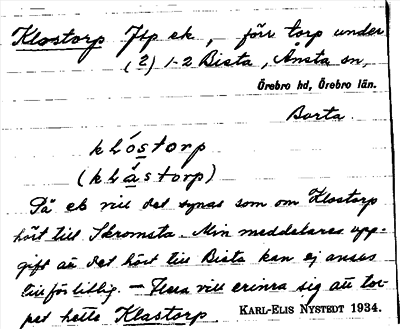 Klostorp Jsp ek, förr torp under
(?) 1-2 Bista, Ånsta sn,
Örebro hd, Örebro län.
Borta
klóstorp
(klåstorp)
På ek vill det synas som om Klostorp
hört till Skromsta. Min meddelares upp-
gift att det hört till Bista kan ej anses
tillförlitlig. — Flera vill erinra sig att tor-
pet hette Klastorp KARL-ELIS NYSTEDT 1934.